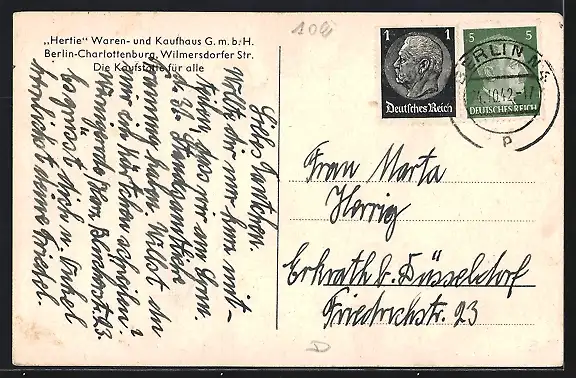 „Hertie“ Waren- und Kaufhaus G. m. b. H.
Berlin-Charlottenburg, Wilmersdorfer Str.
Die Kaufstätte für alle
104
1 1
Deutsches Reich
5 5
DEUTSCHES REICH
BERLIN N 4
10.42
p
Liebes Tantchen.
Wollte dir nur kurz mit-
teilen, dass wir am Sonn.
d. 30. Standesamtliche
Trauung haben. Willst du
mir ein Kärtchen schreiben?
Wernigerode/Harz,
begrüsst dich u. Onkel
herzlichst
Frau Marta
Herrig
Erkrath b. Düsseldorf
Friedrichstr. 23
D